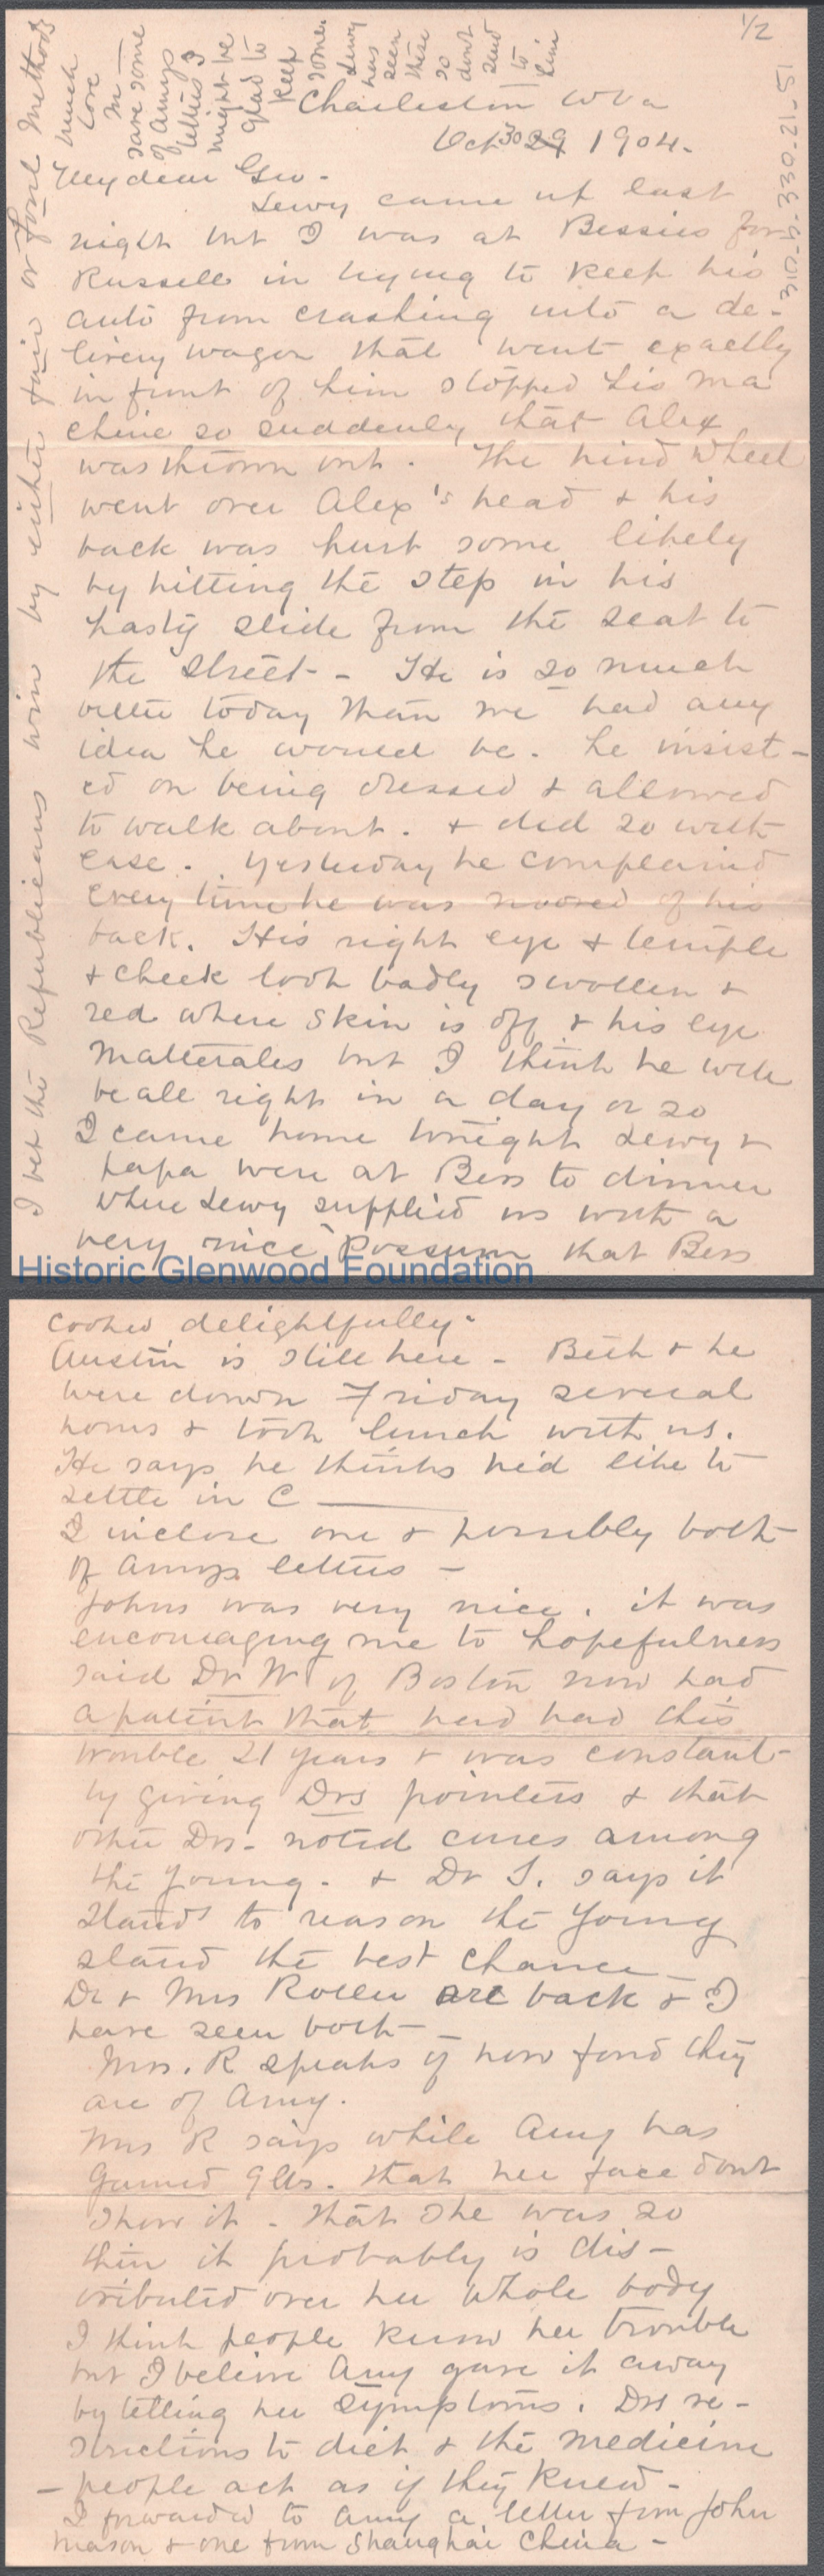 1/2
310-6-330-21.51
Charleston W Va
Oct 30 29 1904.
My dear Geo -
Lewy came up last
night but I was at Bessies for
Russell in trying to keep his
auto from crashing into a de-
livery wagon that went exactly
in front of him stopped his ma
chine so suddenly that Alex
was thrown out. The hind wheel
went over Alex's head & his
back was hurt some likely
by hitting the step in his
hasty slide from the seat to
the street - He is so much
better today than we had any
idea he would be. he insist-
ed on being dressed & allowed
to walk about. & did so with
ease. Yesterday he complained
every time he was moved of his
back. His right eye & temple
& cheek look badly swollen &
red where skin is off & his eye
matterates but I think he will
be all right in a day or so
I came home tonight Lewy &
papa were at Bess to dinner
where Lewy supplied us with a
very nice Possum that Bess
Historic Glenwood Foundation
cooked delightfully.
Austin is still here - Beth & he
were down Friday several
hours & took lunch with us.
He says he thinks he'd like to
settle in C
I inclose one & possibly both
of Amys letters -
Johns was very nice. it was
encouraging me to hopefulness
said Dr W of Boston now had
a patient that he'd had this
trouble 21 years & was constant-
ly giving Drs pointers & that
other Drs. noted cures among
the young. & Dr S. says it
stands to reason the young
stand the best chance
Dr & Mrs Roller are back & I
have seen both -
Mrs. R speaks of how fond they
are of Amy.
Mrs R says while Amy has
gained 9 lbs. that her face dont
show it - that she was so
thin it probably is dis-
tributed over her whole body
I think people know her trouble
but I believe Amy gave it away
by telling her symptoms. Drs re-
strictions to diet & the medicine
- people act as if they knew -
I forwarded to Amy a letter from John
Mason & one from Shanghai China -
I bet the Republicans win by either fair or foul methods
Much
love
M -
save some
of Amys
letters I
might be
glad to
keep
some.
Lewy
has
seen
these
so
dont
send
to
him